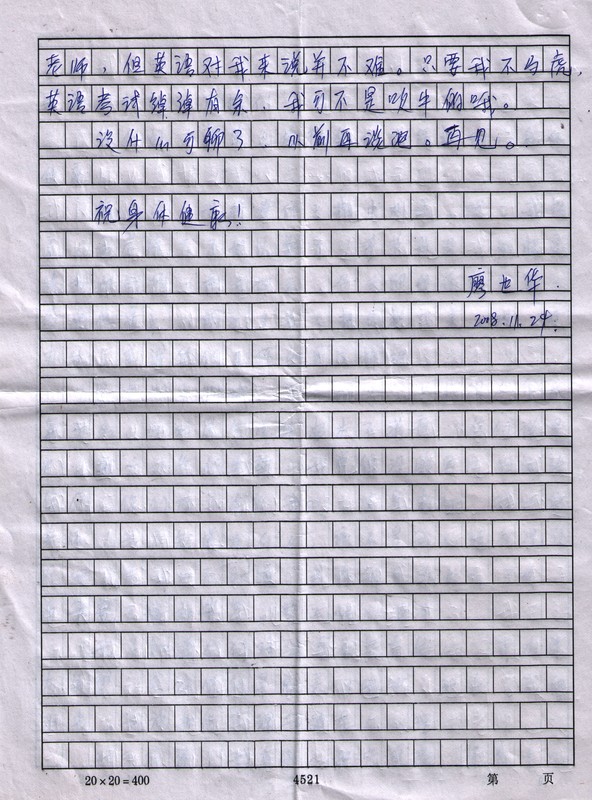 老师，但英语对我来说并不难。只要我不马虎，
英语考试绰绰有余，我可不是吹牛的哦。
没什么可聊了，以前再说吧。再见。
祝身体健康！
廖世华
2008.11.24.
20×20=400 4521 第 页